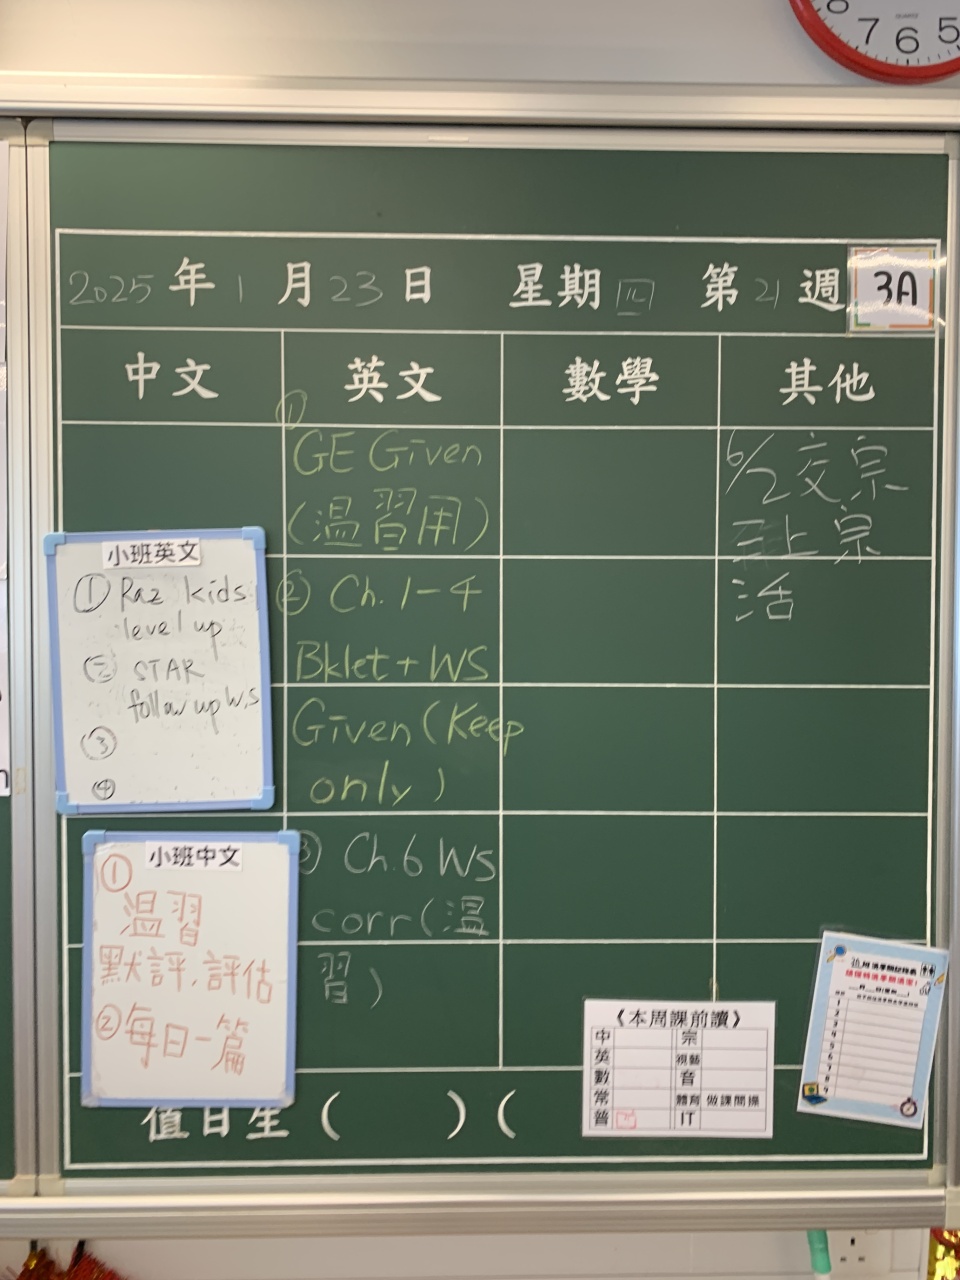 7 6 5
2025 年 1 月 23 日 星期 四 第 21 週 3A
中文 英文 數學 其他
①
GE Given
(温習用)
② Ch.1-4
Bklet + WS
Given (Keep
only)
③ Ch.6 WS
corr (温
習)
6/2 交宗
上宗
活
小班英文
① Raz kids
level up
② STAR
follow up W.S
③
④
小班中文
①
温習
默評.評估
② 每日一篇
值日生 ( ) (
《本周課前讀》
中 宗
英 視藝
數 音
常 體育 做課間操
普 IT
1
2
3
4
5
6
7
8
9